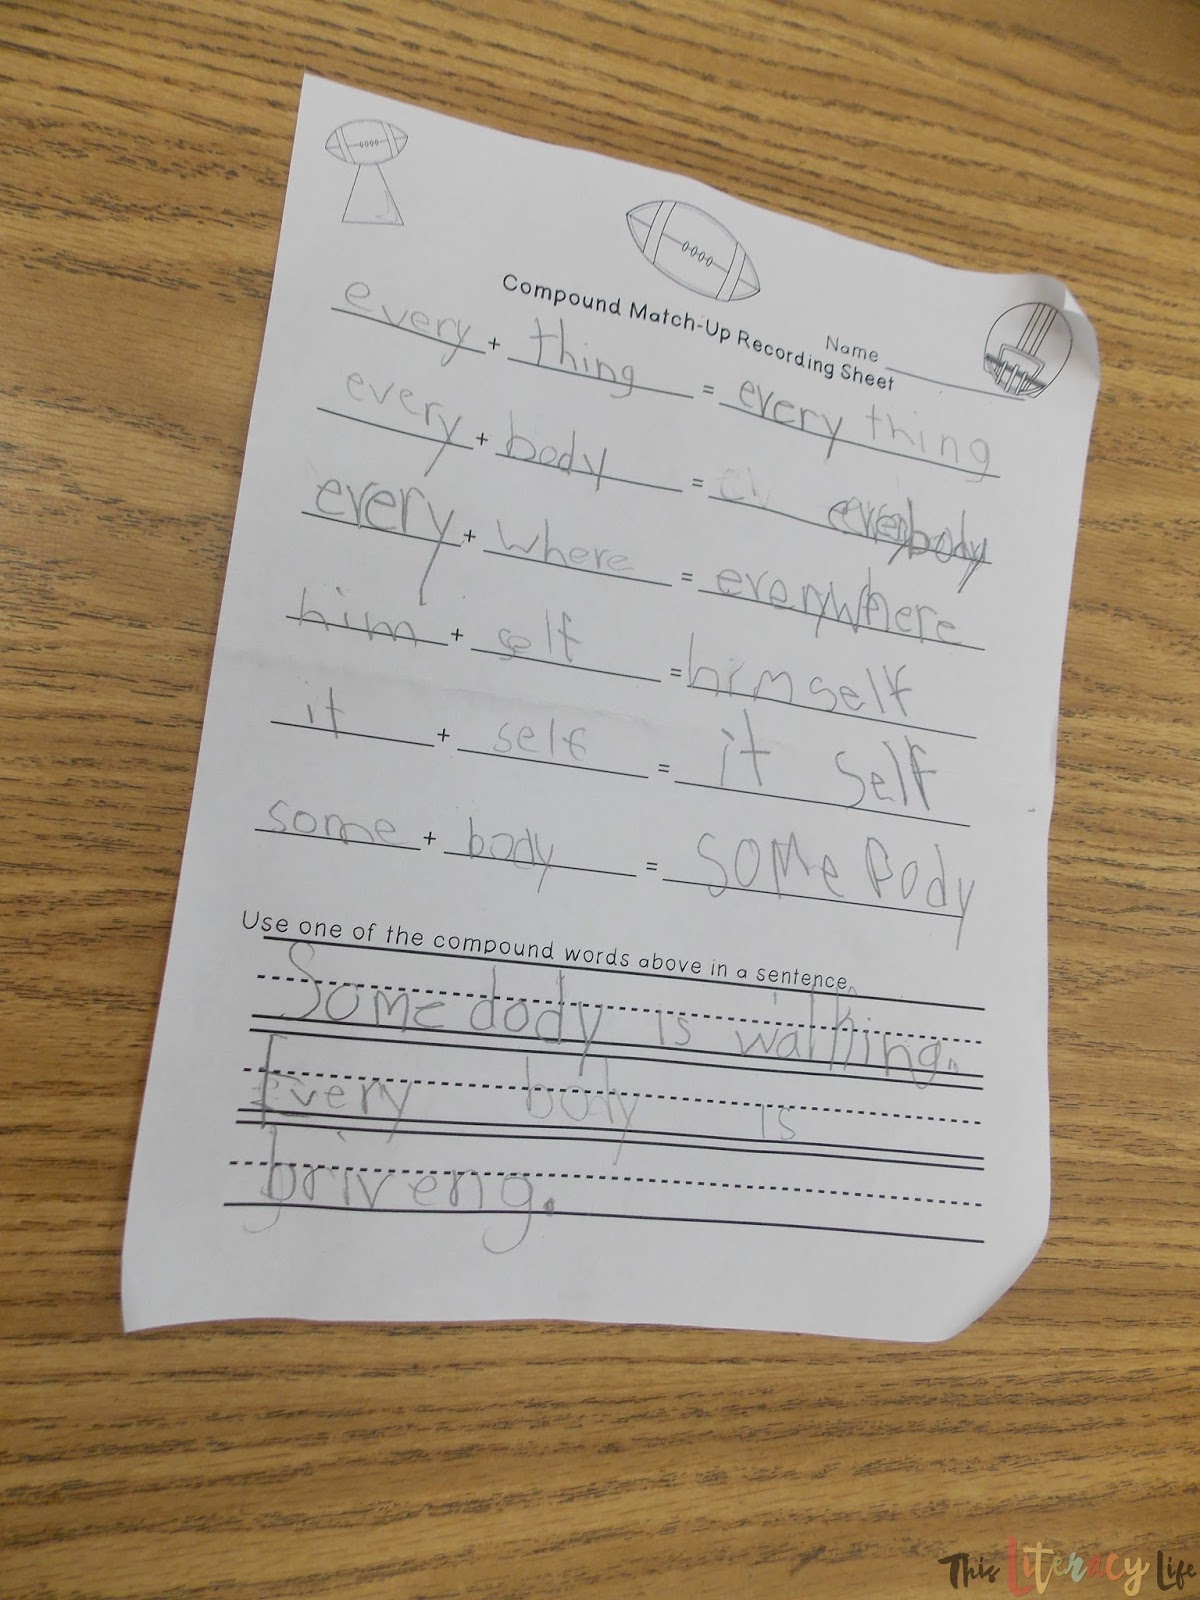 Name
Compound Match-Up Recording Sheet
every + thing = every thing
every + body = everybody
every + where = everywhere
him + self = himself
it + self = it self
some + body = some Body
Use one of the compound words above in a sentence.
Some dody is walking.
Every body is
briveng.
This Literacy Life